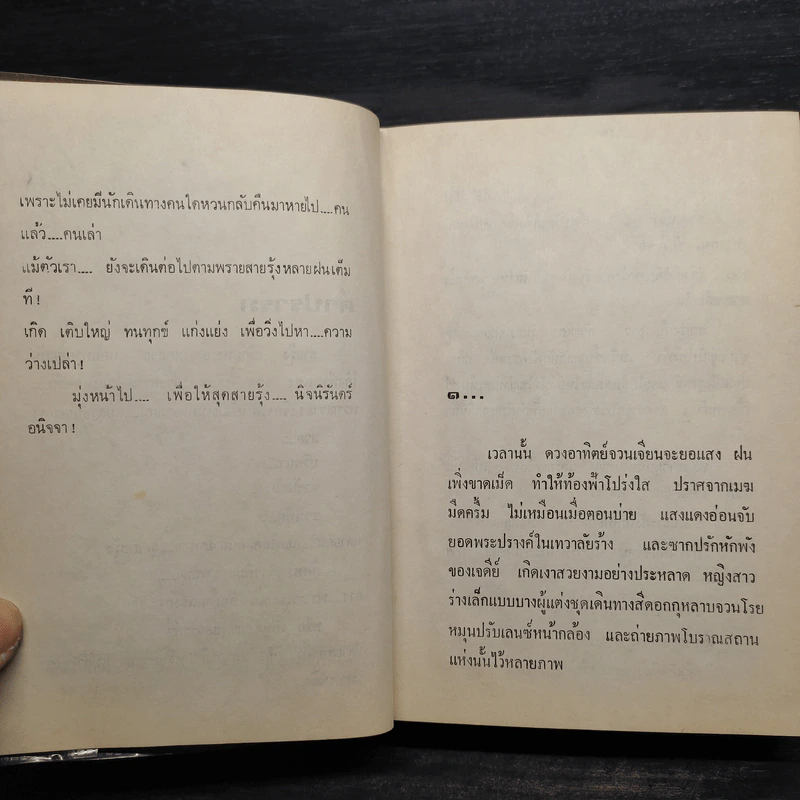 เพราะไม่เคยมีนักเดินทางคนใดหวนกลับคืนมาหายไป....คน
แล้ว....คนเล่า
แม้ตัวเรา.... ยังจะเดินต่อไปตามพรายสายรุ้งหลายฝนเต็ม
ที!
เกิด เติบใหญ่ ทนทุกข์ แก่งแย่ง เพื่อวิ่งไปหา....ความ
ว่างเปล่า!
มุ่งหน้าไป.... เพื่อให้สุดสายรุ้ง.... นิจนิรันดร์
อนิจจา!
๑...
เวลานั้น ดวงอาทิตย์จวนเจียนจะยอแสง ฝน
เพิ่งขาดเม็ด ทำให้ท้องฟ้าโปร่งใส ปราศจากเมฆ
มืดครึ้ม ไม่เหมือนเมื่อตอนบ่าย แสงแดงอ่อนจับ
ยอดพระปรางค์ในเทวาลัยร้าง และซากปรักหักพัง
ของเจดีย์ เกิดเงาสวยงามอย่างประหลาด หญิงสาว
ร่างเล็กแบบบางผู้แต่งชุดเดินทางสีดอกกุหลาบจวนโรย
หมุนปรับเลนซ์หน้ากล้อง และถ่ายภาพโบราณสถาน
แห่งนั้นไว้หลายภาพ